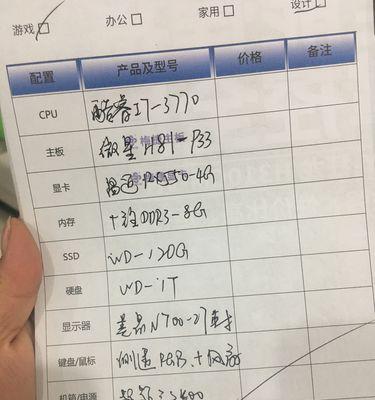 游戏 办公 家用 设计
配置 产品及型号 价格 备注
CPU 酷睿I7-3770
主板 微星H81-P33
显卡 550-4G
内存 DDR3-8G
SSD WD-120G
硬盘 WD-1T
显示器 N700-27
键盘/鼠标 RGB+风扇
机箱/电源